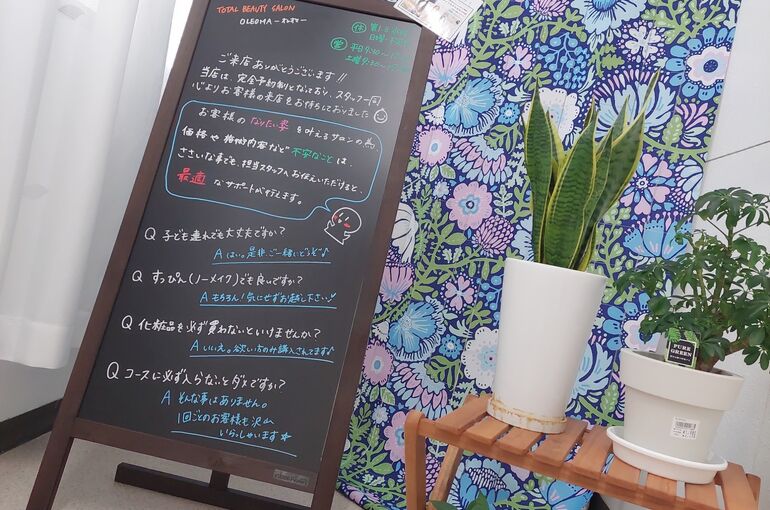 TOTAL BEAUTY SALON
OLEOMA -オレオマ-
ご来店ありがとうございます!!
当店は、完全予約制となっており、スタッフ一同
心よりお客様の来店をお待ちしておりました
お客様の なりたい姿 を叶えるサロンの為
価格や 施術内容など 不安なこと は、
ささいな事でも、担当スタッフへお伝えいただけると、
最適 なサポートが行えます。
Q 子ども連れでも大丈夫ですか?
A はい。是非ご一緒にどうぞ♪
Q すっぴん(ノーメイク)でも良いですか?
A もちろん!気にせずお越し下さい♪
Q 化粧品を必ず買わないといけませんか?
A いいえ。欲しい方のみ購入されてます♪
Q コースに必ず入らないとダメですか?
A そんな事はありません。
1回ごとのお客様も沢山
いらっしゃいます★
PURE
GREEN